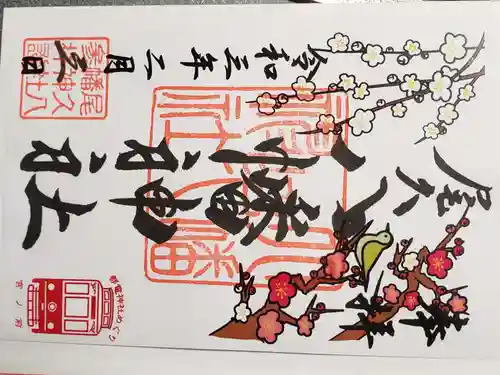 奉拝
尾久
八幡神社
令和三年二
月五日
尾久八
幡神社
都電神社めぐり
宮ノ前